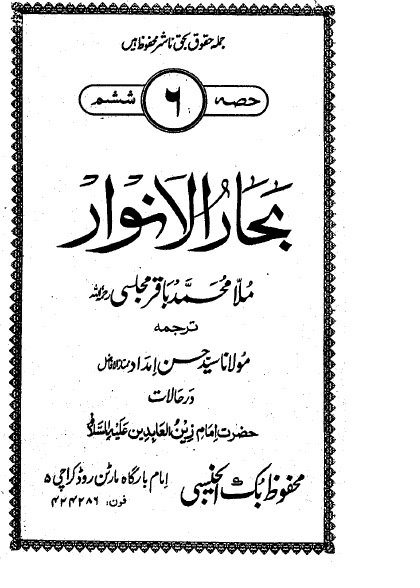 جملہ حقوق بحق ناشر محفوظ ہیں
حصہ ۶ ششم
بحارُ الانوار
مُلّا محمّد باقر مجلسی رحمۃ اللہ
ترجمہ
مولانا سیّد حسن اِمداد ممتاز الافاضل
در حالات
حضرت اِمام زینُ العابدین عَلیہِ السَّلام
محفوظ بک ایجنسی
امام بارگاہ مارٹن روڈ کراچی ۵
فون: ۴۲۴۲۸۶